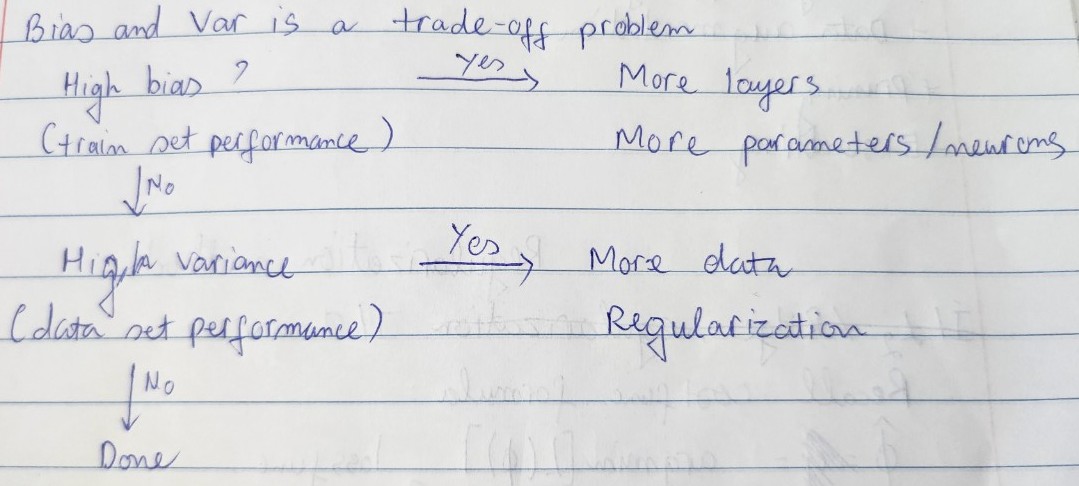 Bias and Var is a trade-off problem
High bias ? Yes More layers
(train set performance) More parameters/neurons
No
High variance Yes More data
(data set performance) Regularization
No
Done